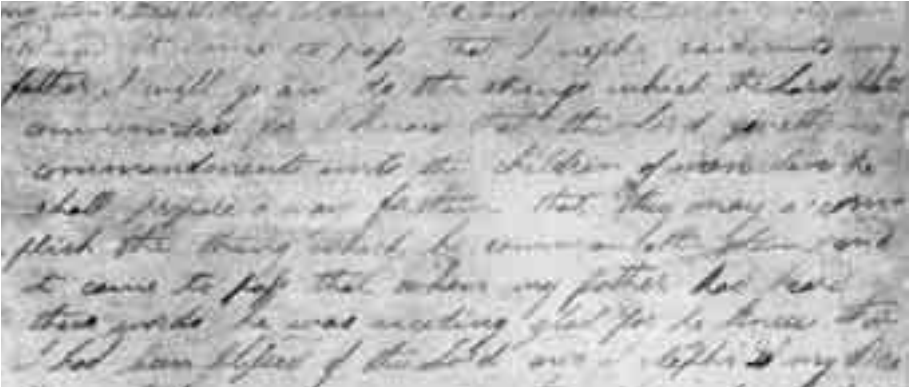 it came to pass that I nephi said unto my
father I will go and do the things which the Lord hath
commanded for I know that the Lord giveth no
commandments unto the children of men save he
shall prepare a way for them that they may accom
plish the thing which he commandeth them and
it came to pass that when my father had heard
these words he was exceding glad for he knew that
I had been blessed of the Lord and I nephi my